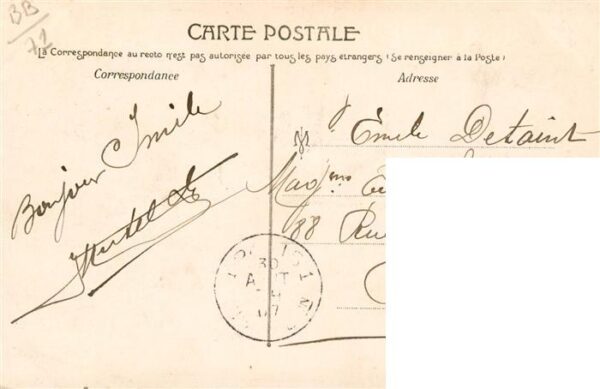 BB
71
CARTE POSTALE
La Correspondance au recto n'est pas autorisée par tous les pays étrangers (Se renseigner à la Poste)
Correspondance
Adresse
Bonjour Emile
M Émile Detaint
Mag
88 Rue
30
AOUT
07